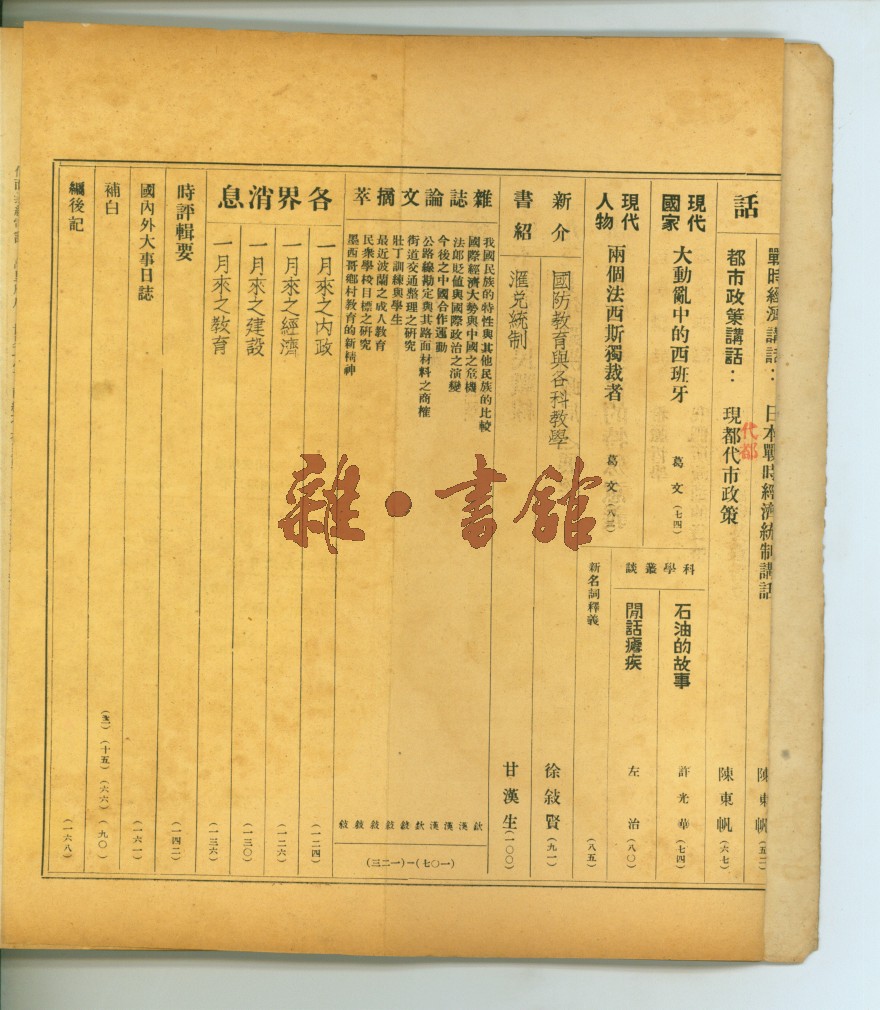 話
戰時經濟講話：　日本戰時經濟統制講話　陳東帆
都市政策講話：　現都代市政策　陳東帆（六七）
代都
現代國家
大動亂中的西班牙　葛文（七四）
現代人物
兩個法西斯獨裁者　葛文
科學叢談
石油的故事　許光華（七四）
閒話瘧疾　左治（八〇）
新名詞釋義（八五）
新書介紹
國防教育與各科教學　徐敍賢（九一）
滙兌統制　甘漢生（一〇〇）
雜誌論文摘萃
我國民族的特性與其他民族的比較　歃
國際經濟大勢與中國之危機　漢
法郎貶值與國際政治之演變　漢
今後之中國合作運動　漢
公路線勘定與其路面材料之商榷　歃
街道交通整理之研究　敍
壯丁訓練與學生　敍
最近波蘭之成人教育　敍
民衆學校目標之研究　敍
墨西哥鄉村教育的新精神　敍
（一〇七）—（一二三）
各界消息
一月來之內政（一二四）
一月來之經濟（一二六）
一月來之建設（一三〇）
一月來之教育（一三六）
時評輯要（一四二）
國內外大事日誌（一六一）
補白（十五）（六六）（九〇）
編後記（一六八）
雜・書館